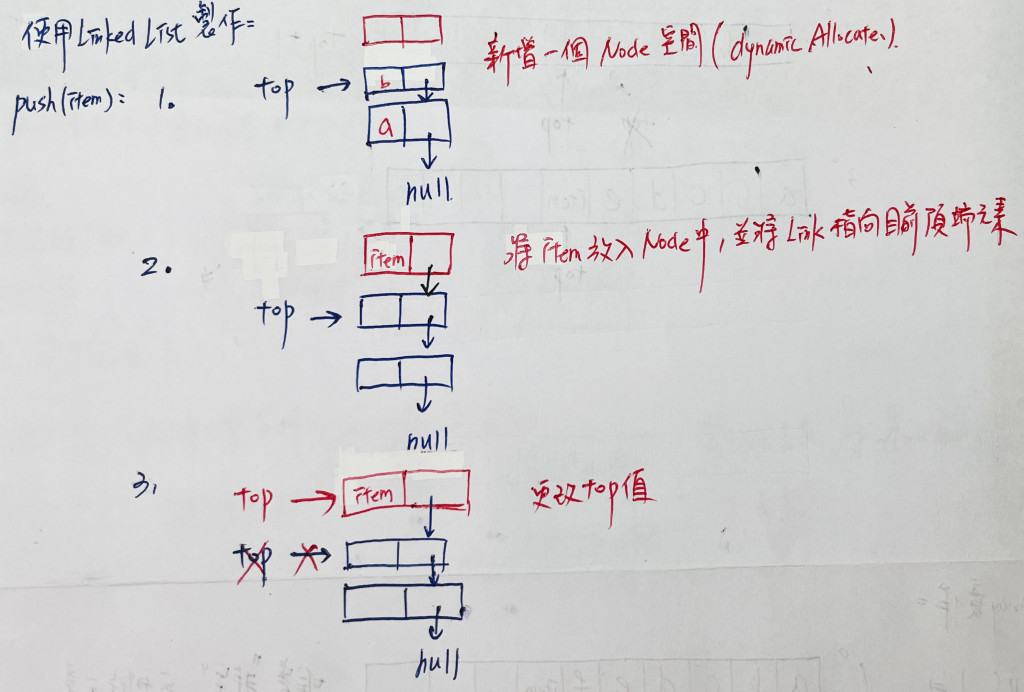 使用Linked List 製作=
push(item): 1.
新增一個 Node 空間 (dynamic Allocate).
top → b
a
null
2.
item
將 item 放入 Node 中, 並將 Link 指向目前頂端元素
top →
null
3.
top → item
更改top值
top →
null